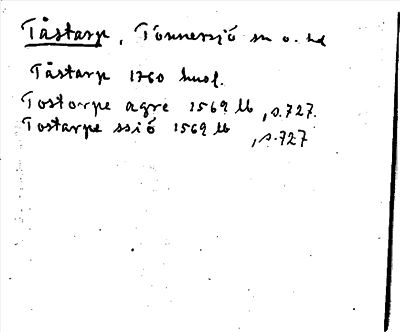 Tåstarp, Tönnersjö sn o. hd
Tåstarp 1760 husf.
Tostorpe agre 1569 lb, s.727.
Tostarpe ssiö 1569 lb, s.727